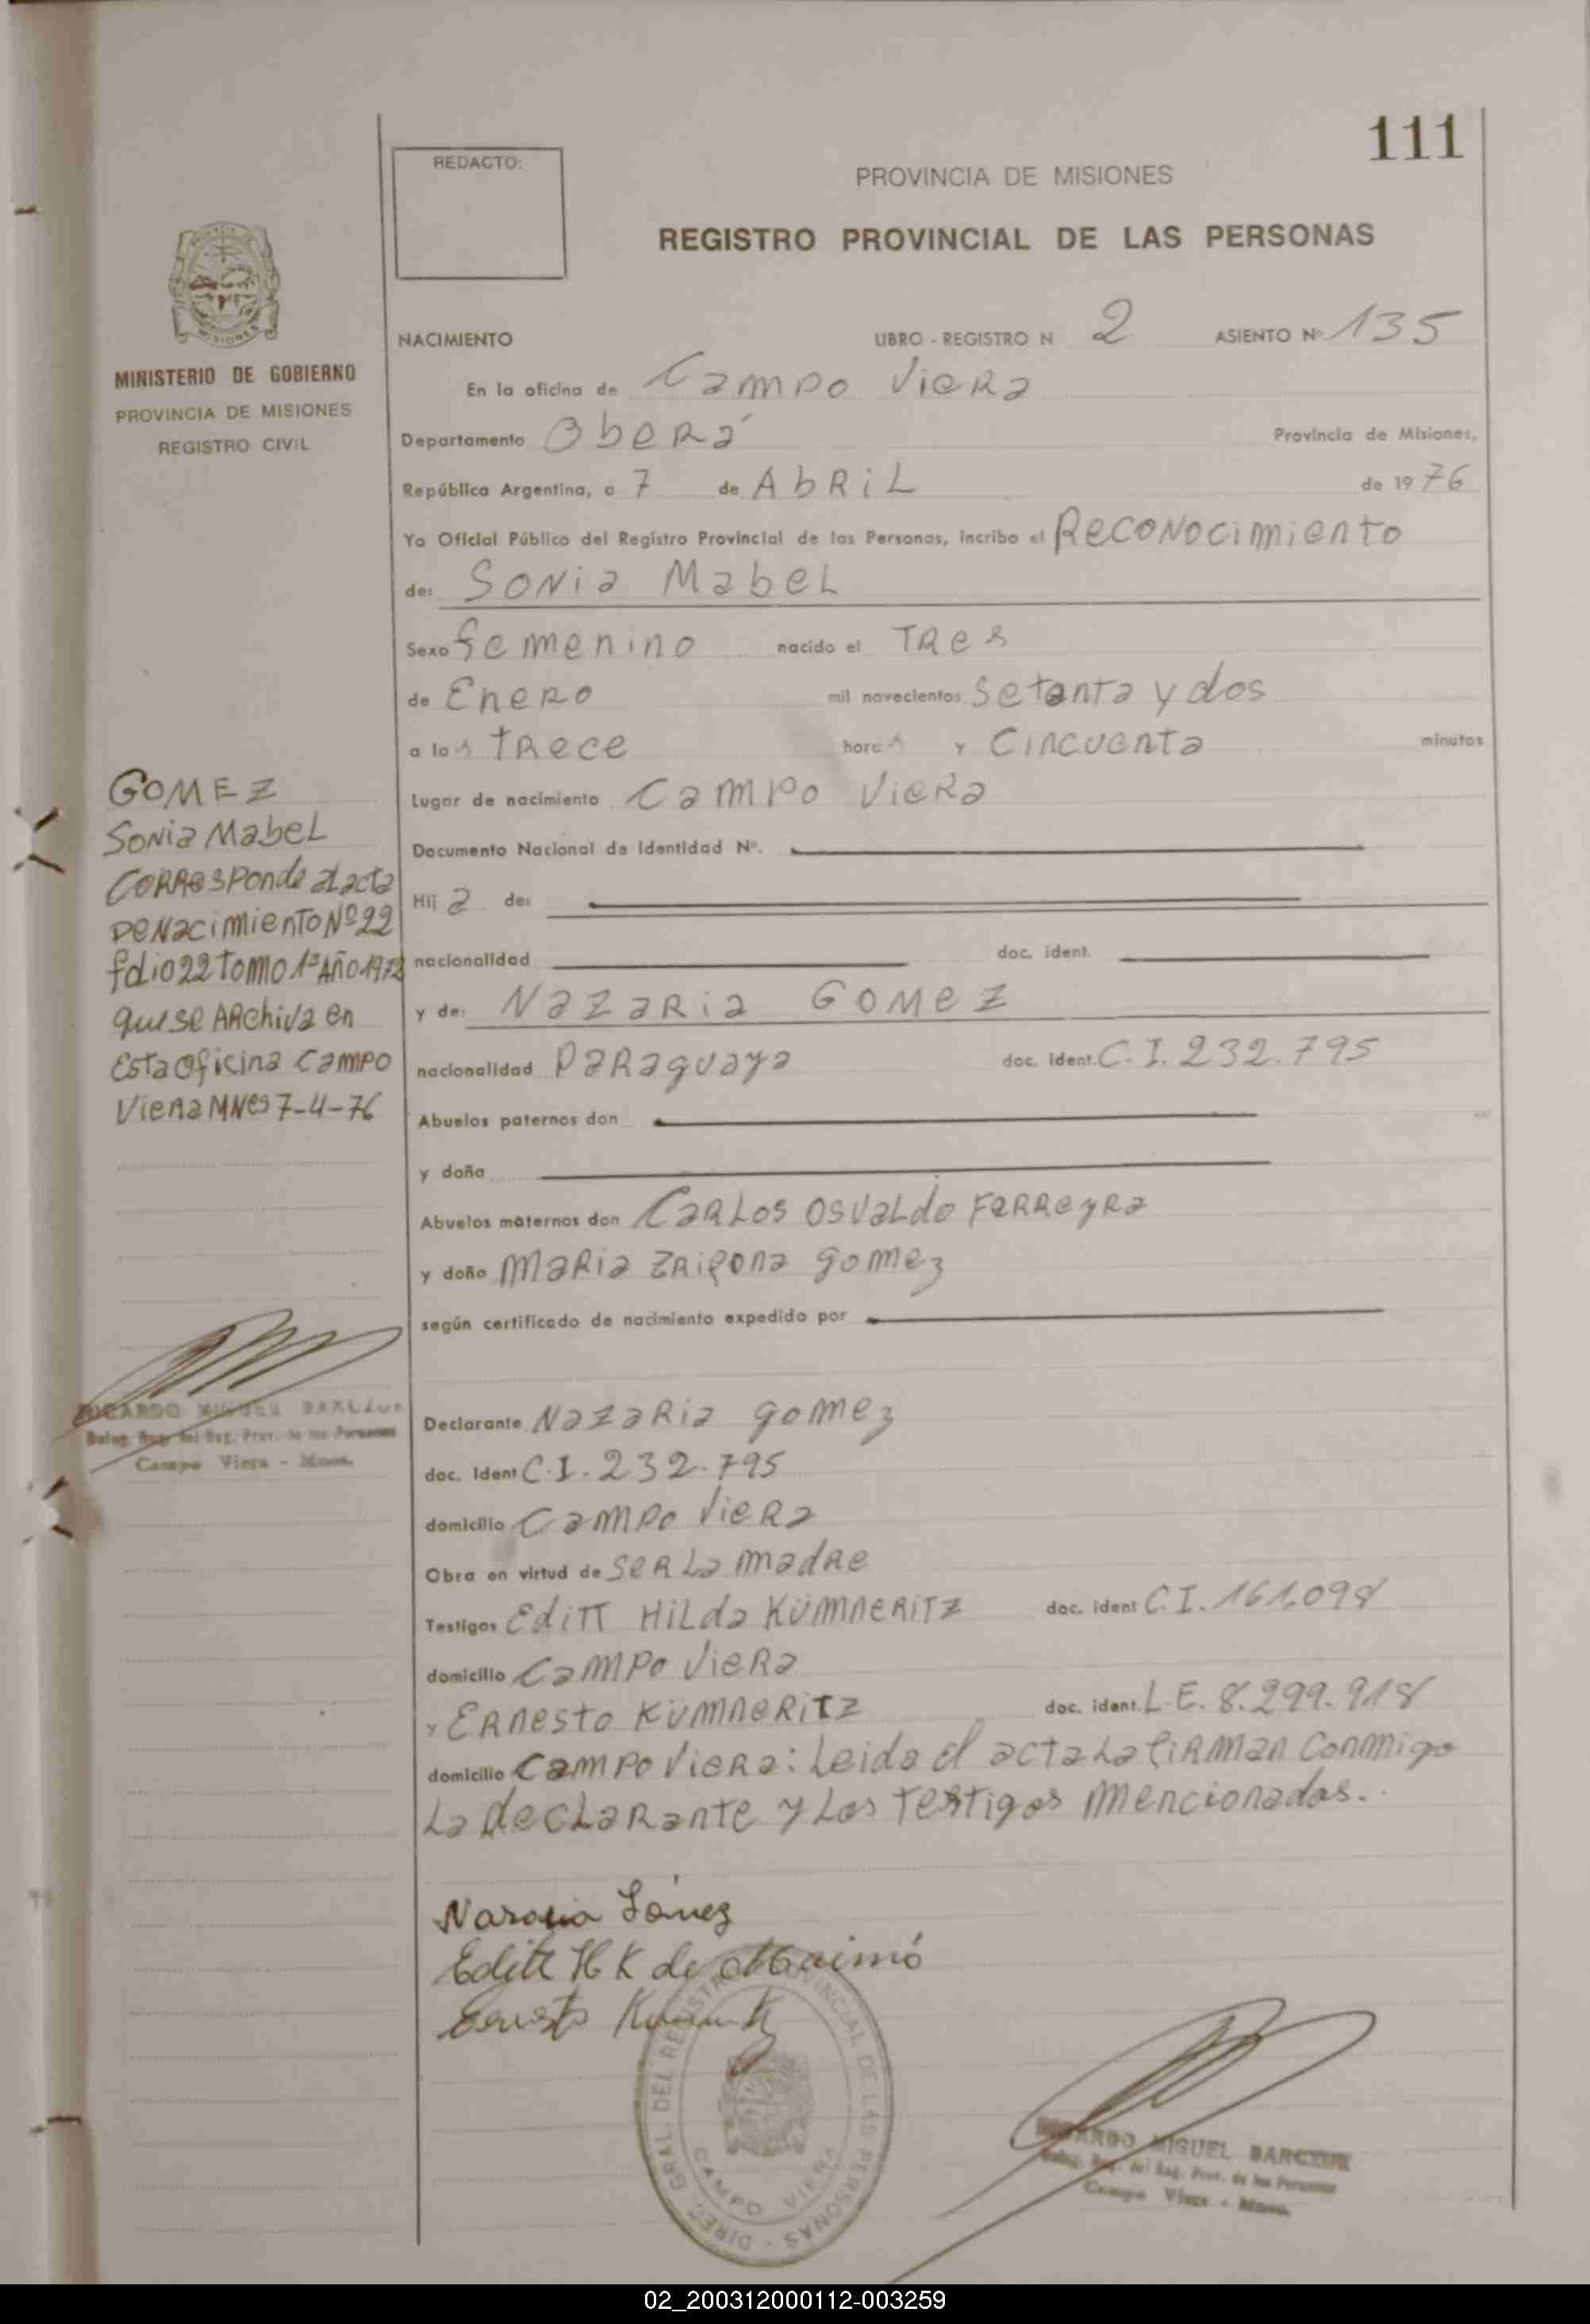 111
REDACTO:
PROVINCIA DE MISIONES
REGISTRO PROVINCIAL DE LAS PERSONAS
MINISTERIO DE GOBIERNO
PROVINCIA DE MISIONES
REGISTRO CIVIL
NACIMIENTO LIBRO - REGISTRO N 2 ASIENTO Nº 135
En la oficina de Campo Viera
Departamento Oberá Provincia de Misiones,
República Argentina, a 7 de Abril de 1976
Yo Oficial Público del Registro Provincial de las Personas, incribo el Reconocimiento
de: Sonia Mabel
Sexo femenino nacido el Tres
de Enero mil novecientos Setenta y dos
a las trece horas y Cincuenta minutos
Lugar de nacimiento Campo Viera
Documento Nacional de Identidad Nº.
Hija de:
nacionalidad doc. ident.
y de: Nazaria Gomez
nacionalidad Paraguaya doc. ident. C.I. 232.795
Abuelos paternos don
y doña
Abuelos maternos don Carlos Osvaldo Ferreyra
y doña Maria gomez
según certificado de nacimiento expedido por
Declarante Nazaria gomez
doc. Ident C.I. 232.795
domicilio Campo Viera
Obra en virtud de ser La madre
Testigos Editt Hilda doc. ident C.I. 161.098
domicilio Campo Viera
y Ernesto doc. ident. L.E. 8.299.918
domicilio Campo Viera: Leida el acta La firman Conmigo
La declarante y Los testigos mencionados.
GOMEZ
Sonia Mabel
Corresponde al acta
De Nacimiento Nº 22
folio 22 Tomo 1º Año 1972
que se Archiva en
Esta oficina Campo
Viera Mnes 7-4-76
RICARDO MIGUEL
Campo Viera - Mnes.
Gómez
Editt H K de
DIREC. GRAL. DEL REGISTRO PROVINCIAL DE LAS PERSONAS
CAMPO VIERA
RICARDO MIGUEL
Deleg. Reg. del Reg. Prov. de las Personas
Campo Viera - Mnes.
02_200312000112-003259